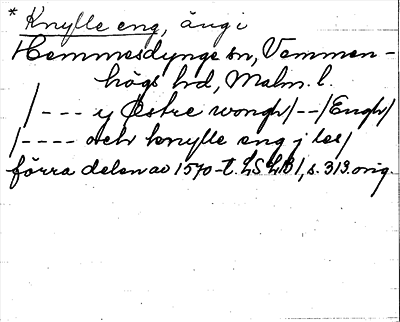 * Knylle eng, äng i
Hemmesdynge sn, Vemmen-
högs hd, Malm. l.
/--- y Østre wongh/--/Engh/
/---- och knylle eng j les/
förra delen av 1570-t. LSLB 1, s. 313. orig.